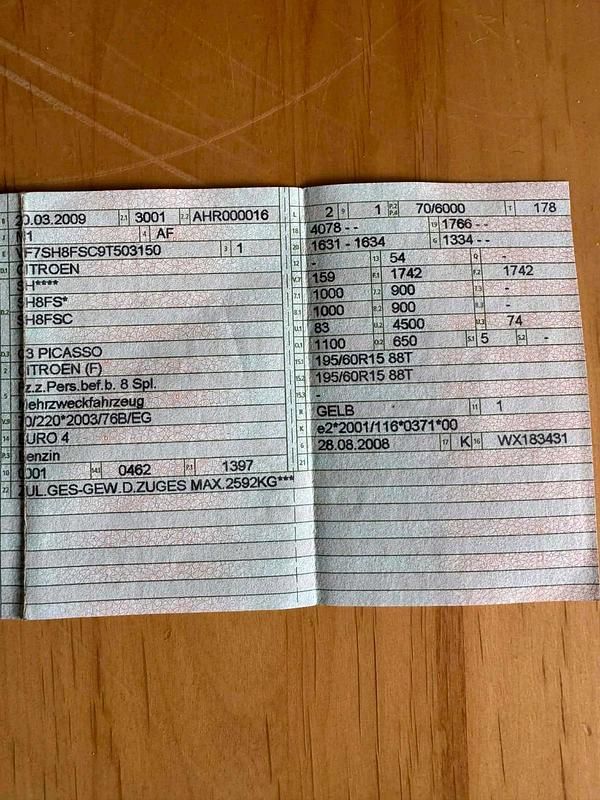 20.03.2009 2.1 3001 2.2 AHR000016
M1 4 AF
VF7SH8FSC9T503150 3 1
CITROEN
SH****
SH8FS*
SH8FSC
C3 PICASSO
CITROEN (F)
Fz.z.Pers.bef.b. 8 Spl.
Mehrzweckfahrzeug
70/220*2003/76B/EG
EURO 4
Benzin
0001 0462 P.1 1397
ZUL.GES-GEW.D.ZUGES MAX.2592KG***
L 2 9 1 P.2 P.4 70/6000 T 178
18 4078 - - 19 1766 - -
20 1631 - 1634 G 1334 - -
12 - 13 54 Q -
V.7 159 F.1 1742 F.2 1742
7.1 1000 7.2 900 7.3 -
8.1 1000 8.2 900 8.3 -
U.1 83 U.2 4500 U.3 74
O.1 1100 O.2 650 S.1 5 S.2 -
15.1 195/60R15 88T
15.2 195/60R15 88T
15.3 -
R GELB 11 1
K e2*2001/116*0371*00
6 28.08.2008 17 K 16 WX183431
21